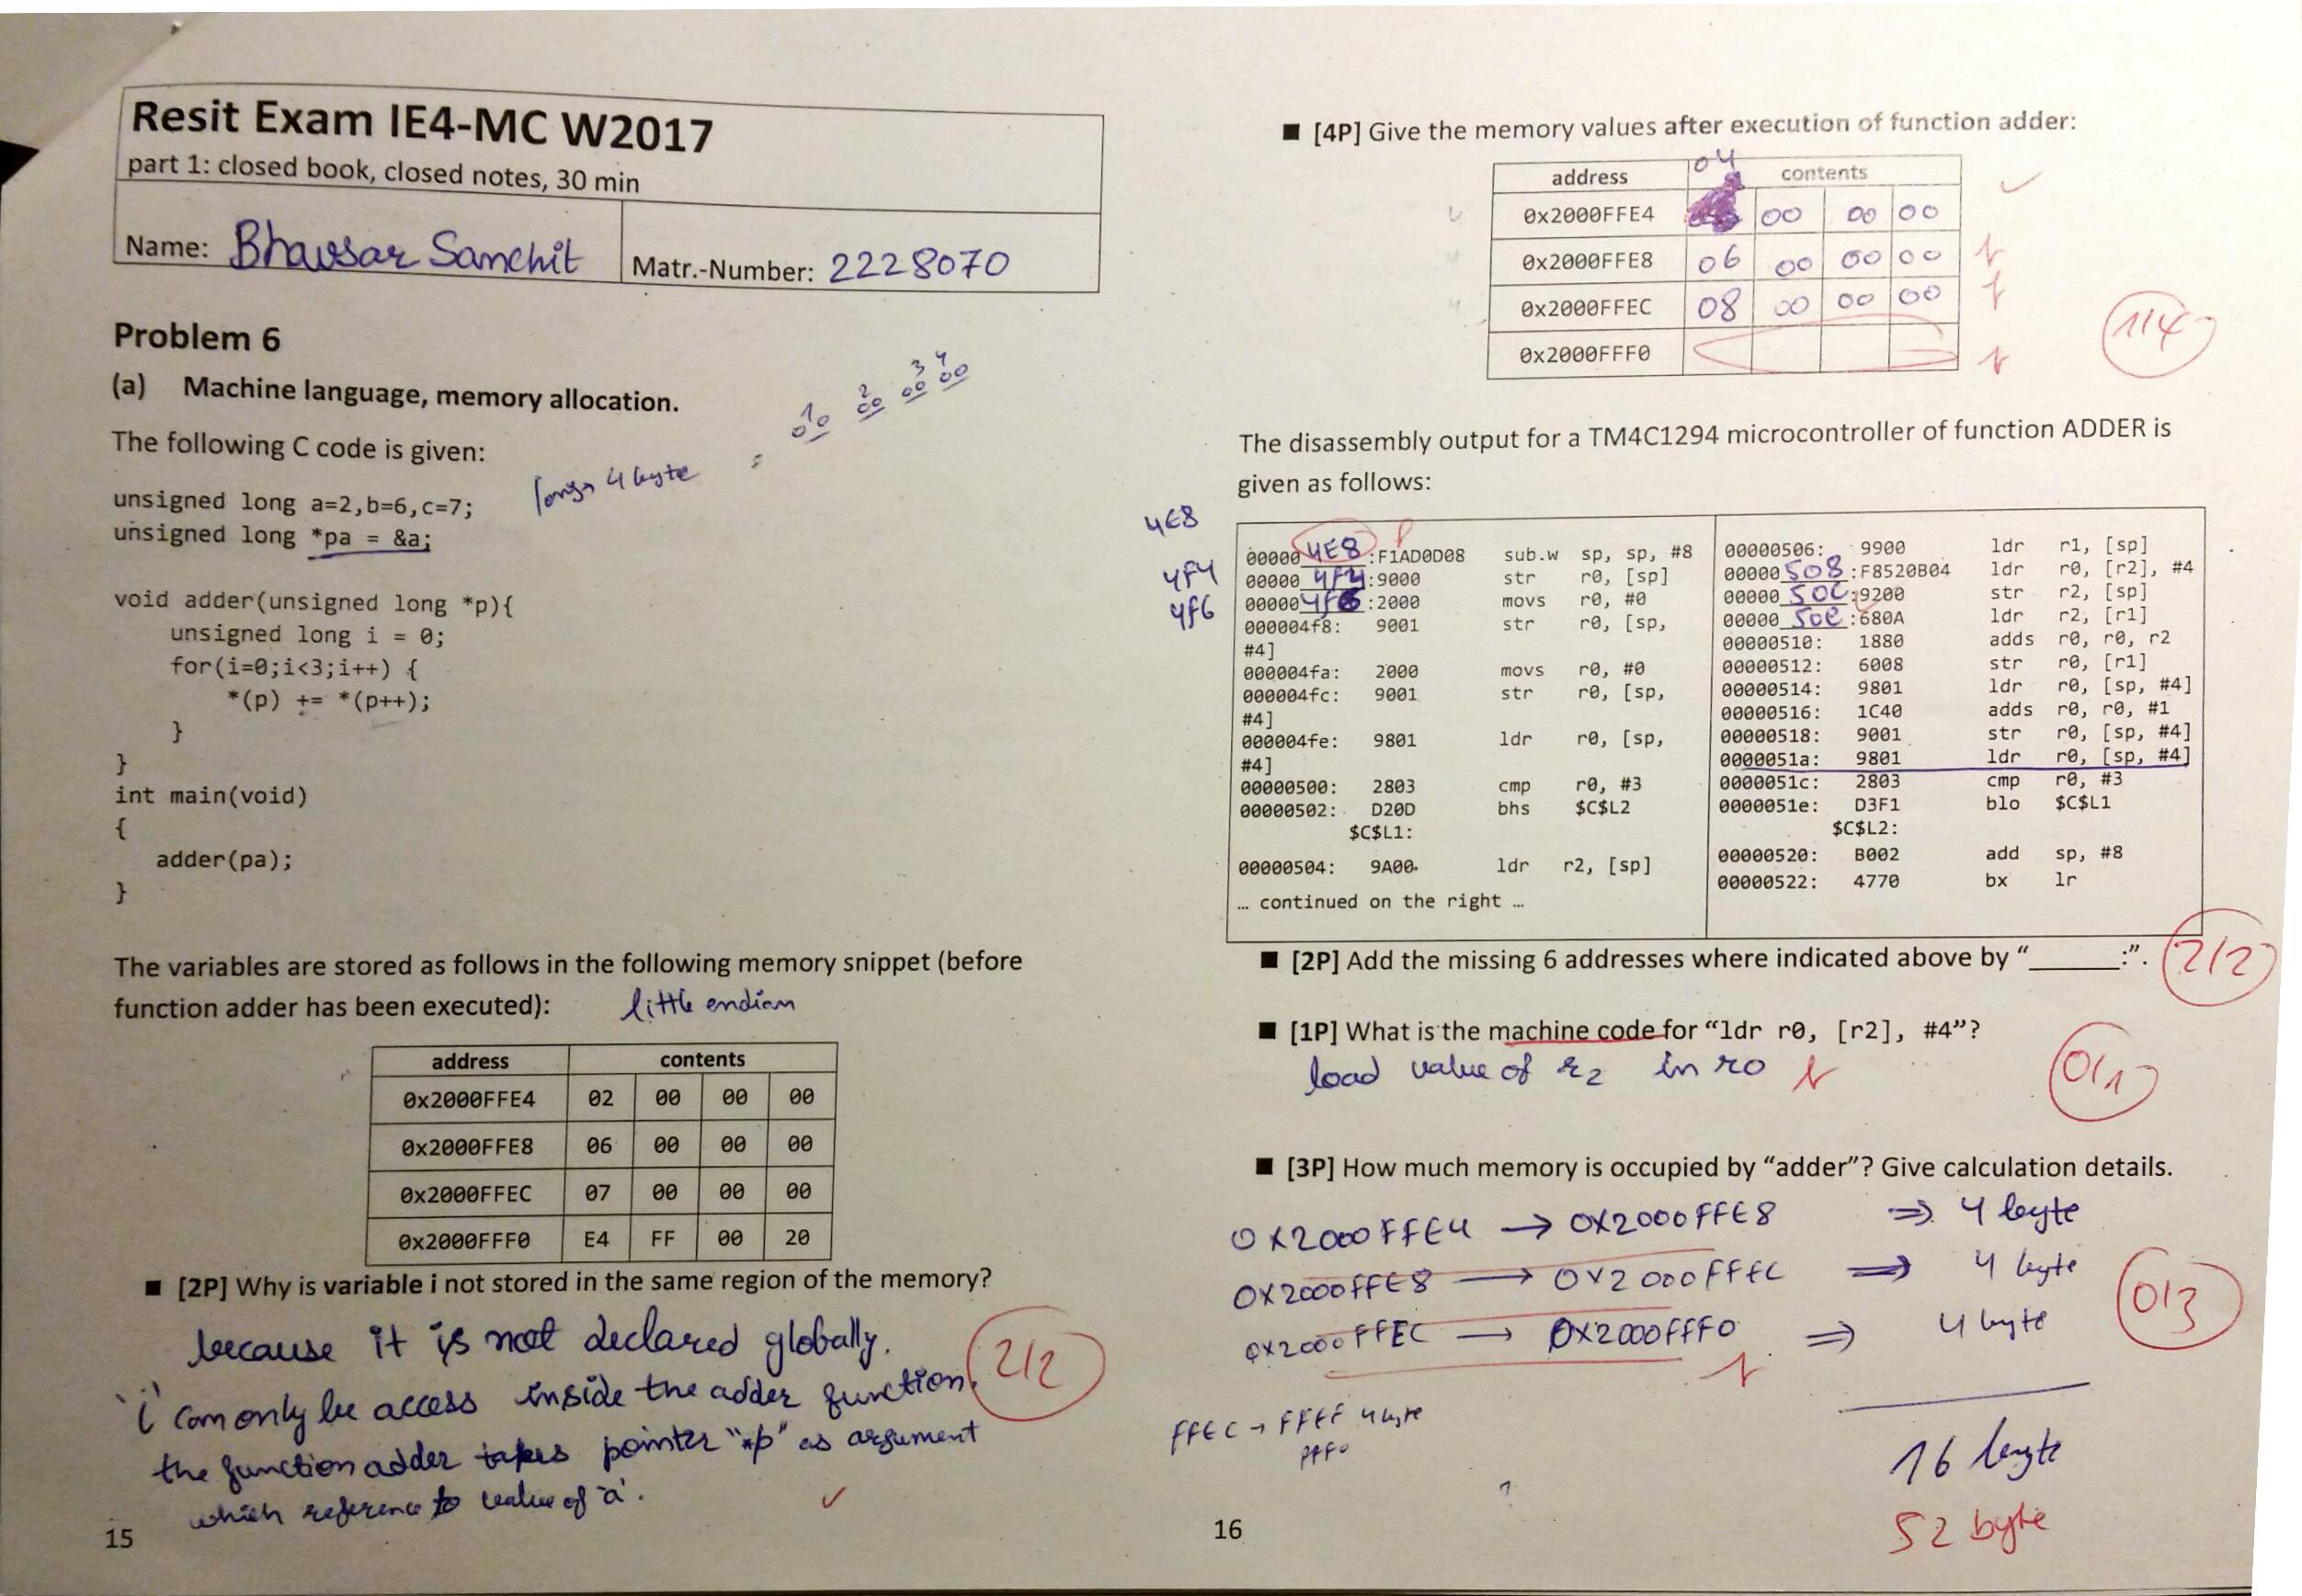 Resit Exam IE4-MC W2017
part 1: closed book, closed notes, 30 min
Name: Bhavsar Sanchit
Matr.-Number: 2228070
Problem 6
(a) Machine language, memory allocation.
The following C code is given:
long → 4 byte
1 2 3 4
00 00 00 00
unsigned long a=2,b=6,c=7;
unsigned long *pa = &a;
void adder(unsigned long *p){
unsigned long i = 0;
for(i=0;i<3;i++) {
*(p) += *(p++);
}
}
int main(void)
{
adder(pa);
}
The variables are stored as follows in the following memory snippet (before
function adder has been executed): little endian
address contents
0x2000FFE4 02 00 00 00
0x2000FFE8 06 00 00 00
0x2000FFEC 07 00 00 00
0x2000FFF0 E4 FF 00 20
■ [2P] Why is variable i not stored in the same region of the memory?
because it is not declared globally.
'i' can only be access inside the adder function.
the function adder takes pointer "*p" as argument
which reference to value of 'a'.
2/2
15
■ [4P] Give the memory values after execution of function adder:
address contents
04
0x2000FFE4 00 00 00
0x2000FFE8 06 00 00 00
0x2000FFEC 08 00 00 00
0x2000FFF0
1/4
The disassembly output for a TM4C1294 microcontroller of function ADDER is
given as follows:
4E8
4F4
4F6
00000 4E8 :F1AD0D08 sub.w sp, sp, #8
00000 4F4 :9000 str r0, [sp]
00000 4F6 :2000 movs r0, #0
000004f8: 9001 str r0, [sp,
#4]
000004fa: 2000 movs r0, #0
000004fc: 9001 str r0, [sp,
#4]
000004fe: 9801 ldr r0, [sp,
#4]
00000500: 2803 cmp r0, #3
00000502: D20D bhs $C$L2
$C$L1:
00000504: 9A00 ldr r2, [sp]
… continued on the right …
00000506: 9900 ldr r1, [sp]
00000 508 :F8520B04 ldr r0, [r2], #4
00000 50C :9200 str r2, [sp]
00000 50E :680A ldr r2, [r1]
00000510: 1880 adds r0, r0, r2
00000512: 6008 str r0, [r1]
00000514: 9801 ldr r0, [sp, #4]
00000516: 1C40 adds r0, r0, #1
00000518: 9001 str r0, [sp, #4]
0000051a: 9801 ldr r0, [sp, #4]
0000051c: 2803 cmp r0, #3
0000051e: D3F1 blo $C$L1
$C$L2:
00000520: B002 add sp, #8
00000522: 4770 bx lr
■ [2P] Add the missing 6 addresses where indicated above by "______:".
2/2
■ [1P] What is the machine code for "ldr r0, [r2], #4"?
load value of r2 in r0
0/1
■ [3P] How much memory is occupied by "adder"? Give calculation details.
0X2000FFE4 → 0X2000FFE8 ⇒ 4 byte
0X2000FFE8 → 0X2000FFEC ⇒ 4 byte
0X2000FFEC → 0X2000FFF0 ⇒ 4 byte
0/3
FFEC → FFEF 4 byte
FFF0
16 byte
?
52 byte
16